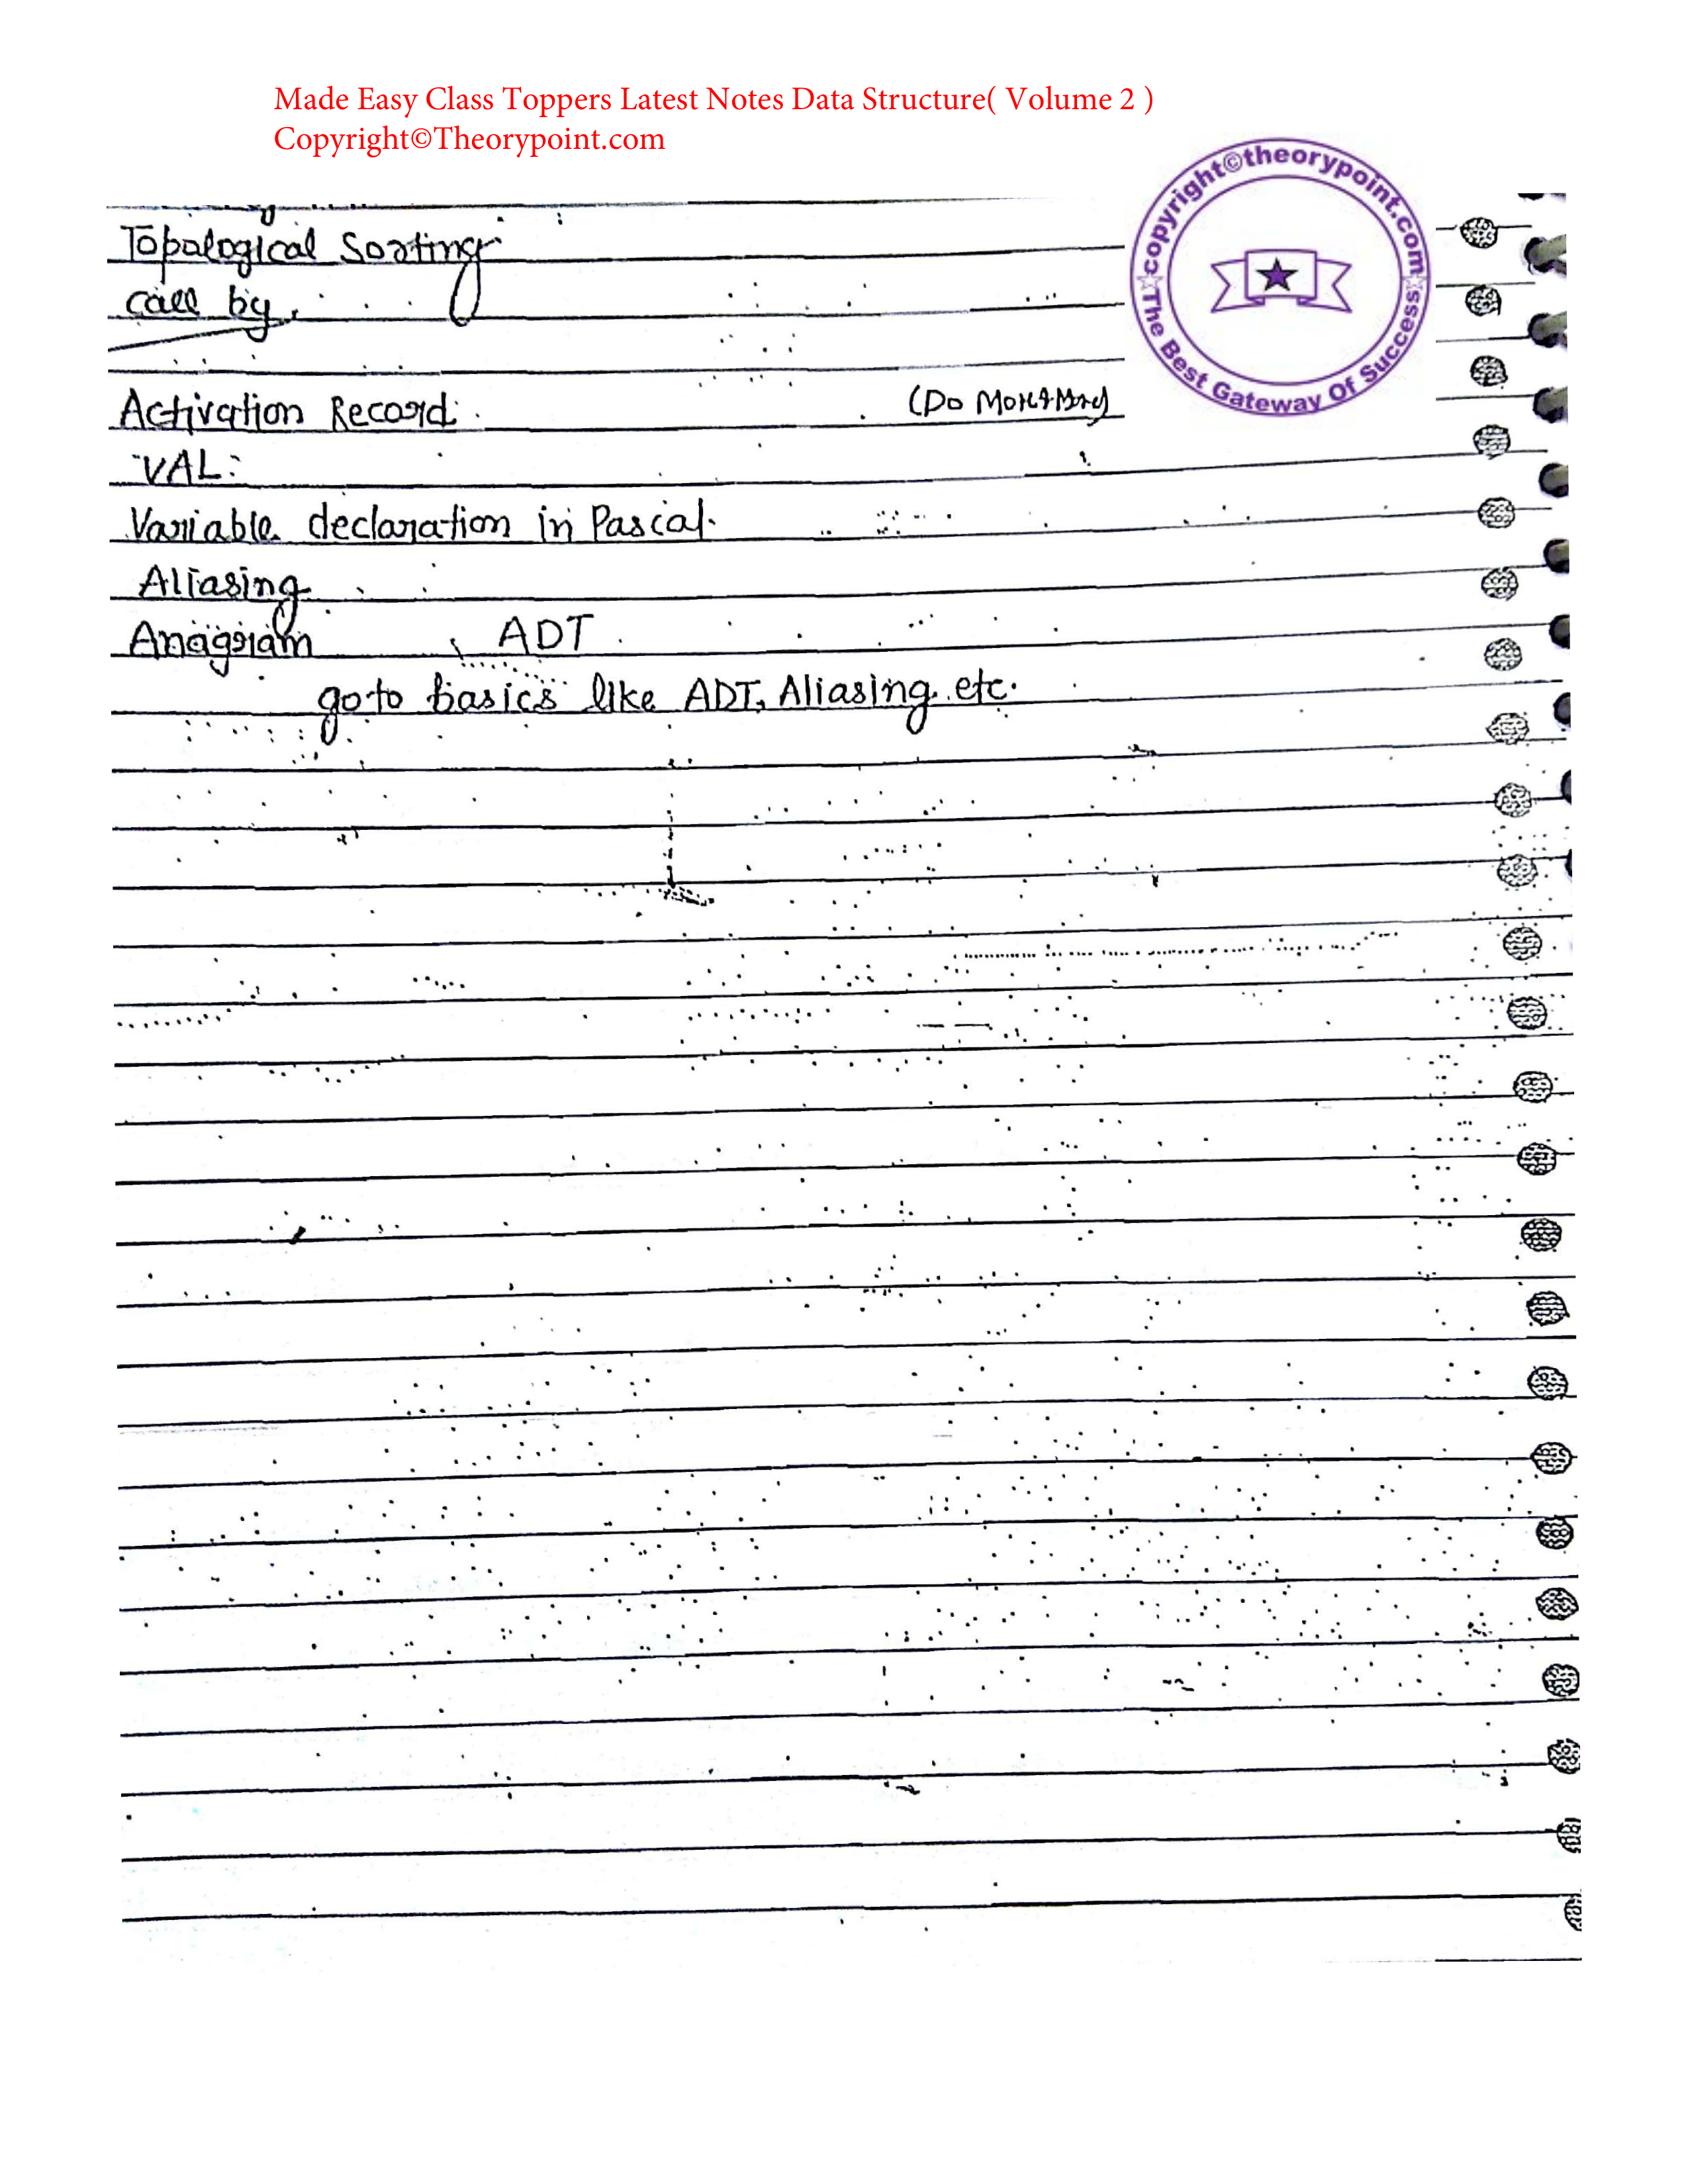 Made Easy Class Toppers Latest Notes Data Structure( Volume 2 )
Copyright©Theorypoint.com
copyright©theorypoint.com
The Best Gateway Of Success
Topalogical Sorting
Call by
Activation Record (Do More & More)
VAL:
Variable declaration in Pascal.
Aliasing
Anagram ADT
go to basics like ADT, Aliasing etc.